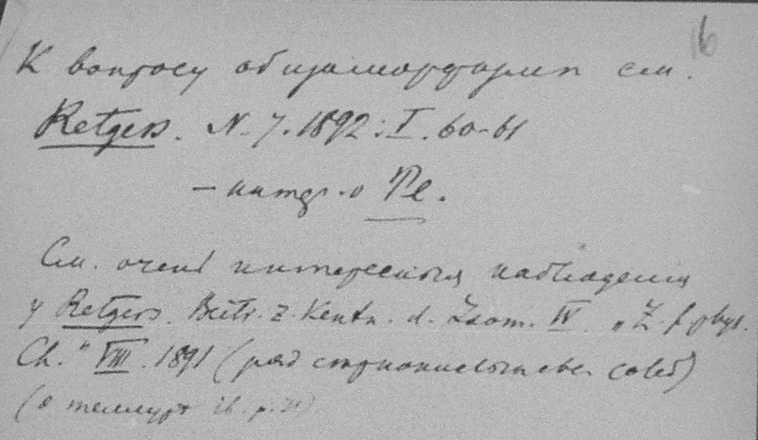 16
К вопросу об изоморфизме см.
Retgers. N. J. 1892. I. 60-61
– интер. о Te.
См. очень интересныя наблюдения
у Retgers. Beitr. z. Kentn. d. Isom. IV. „Z. f. phys.
Ch." VIII. 1891 (ряд солей)
(о теллуре ib. p.